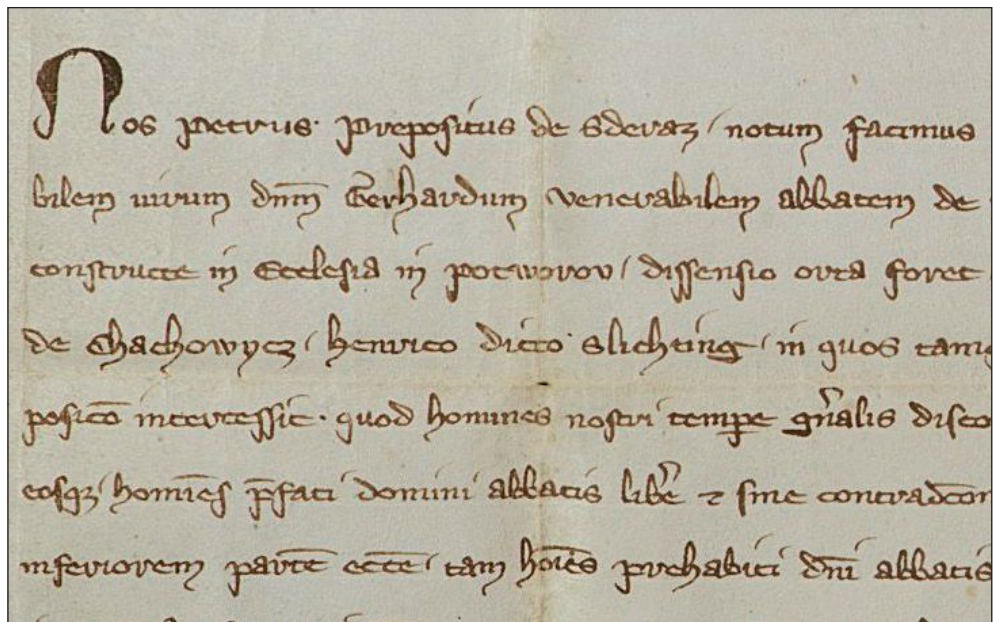 Nos Petrus prepositus de Sderaz / notum facimus
bilem uirum dnm̄ Gerhardum venerabilem abbatem de
constructe in Ecclesia in potworov / dissensio orta foret
de Chachowycz / henrico dicto slichting / in quos tamq
positō intercessit · quod homines nostri tempe gn̄alis disco
eosqz homīes p̄fati domini abbatis libē ⁊ sine contradcōn
inferiorem partē eccē / tam hoīēs prehabiti dn̄i abbatis